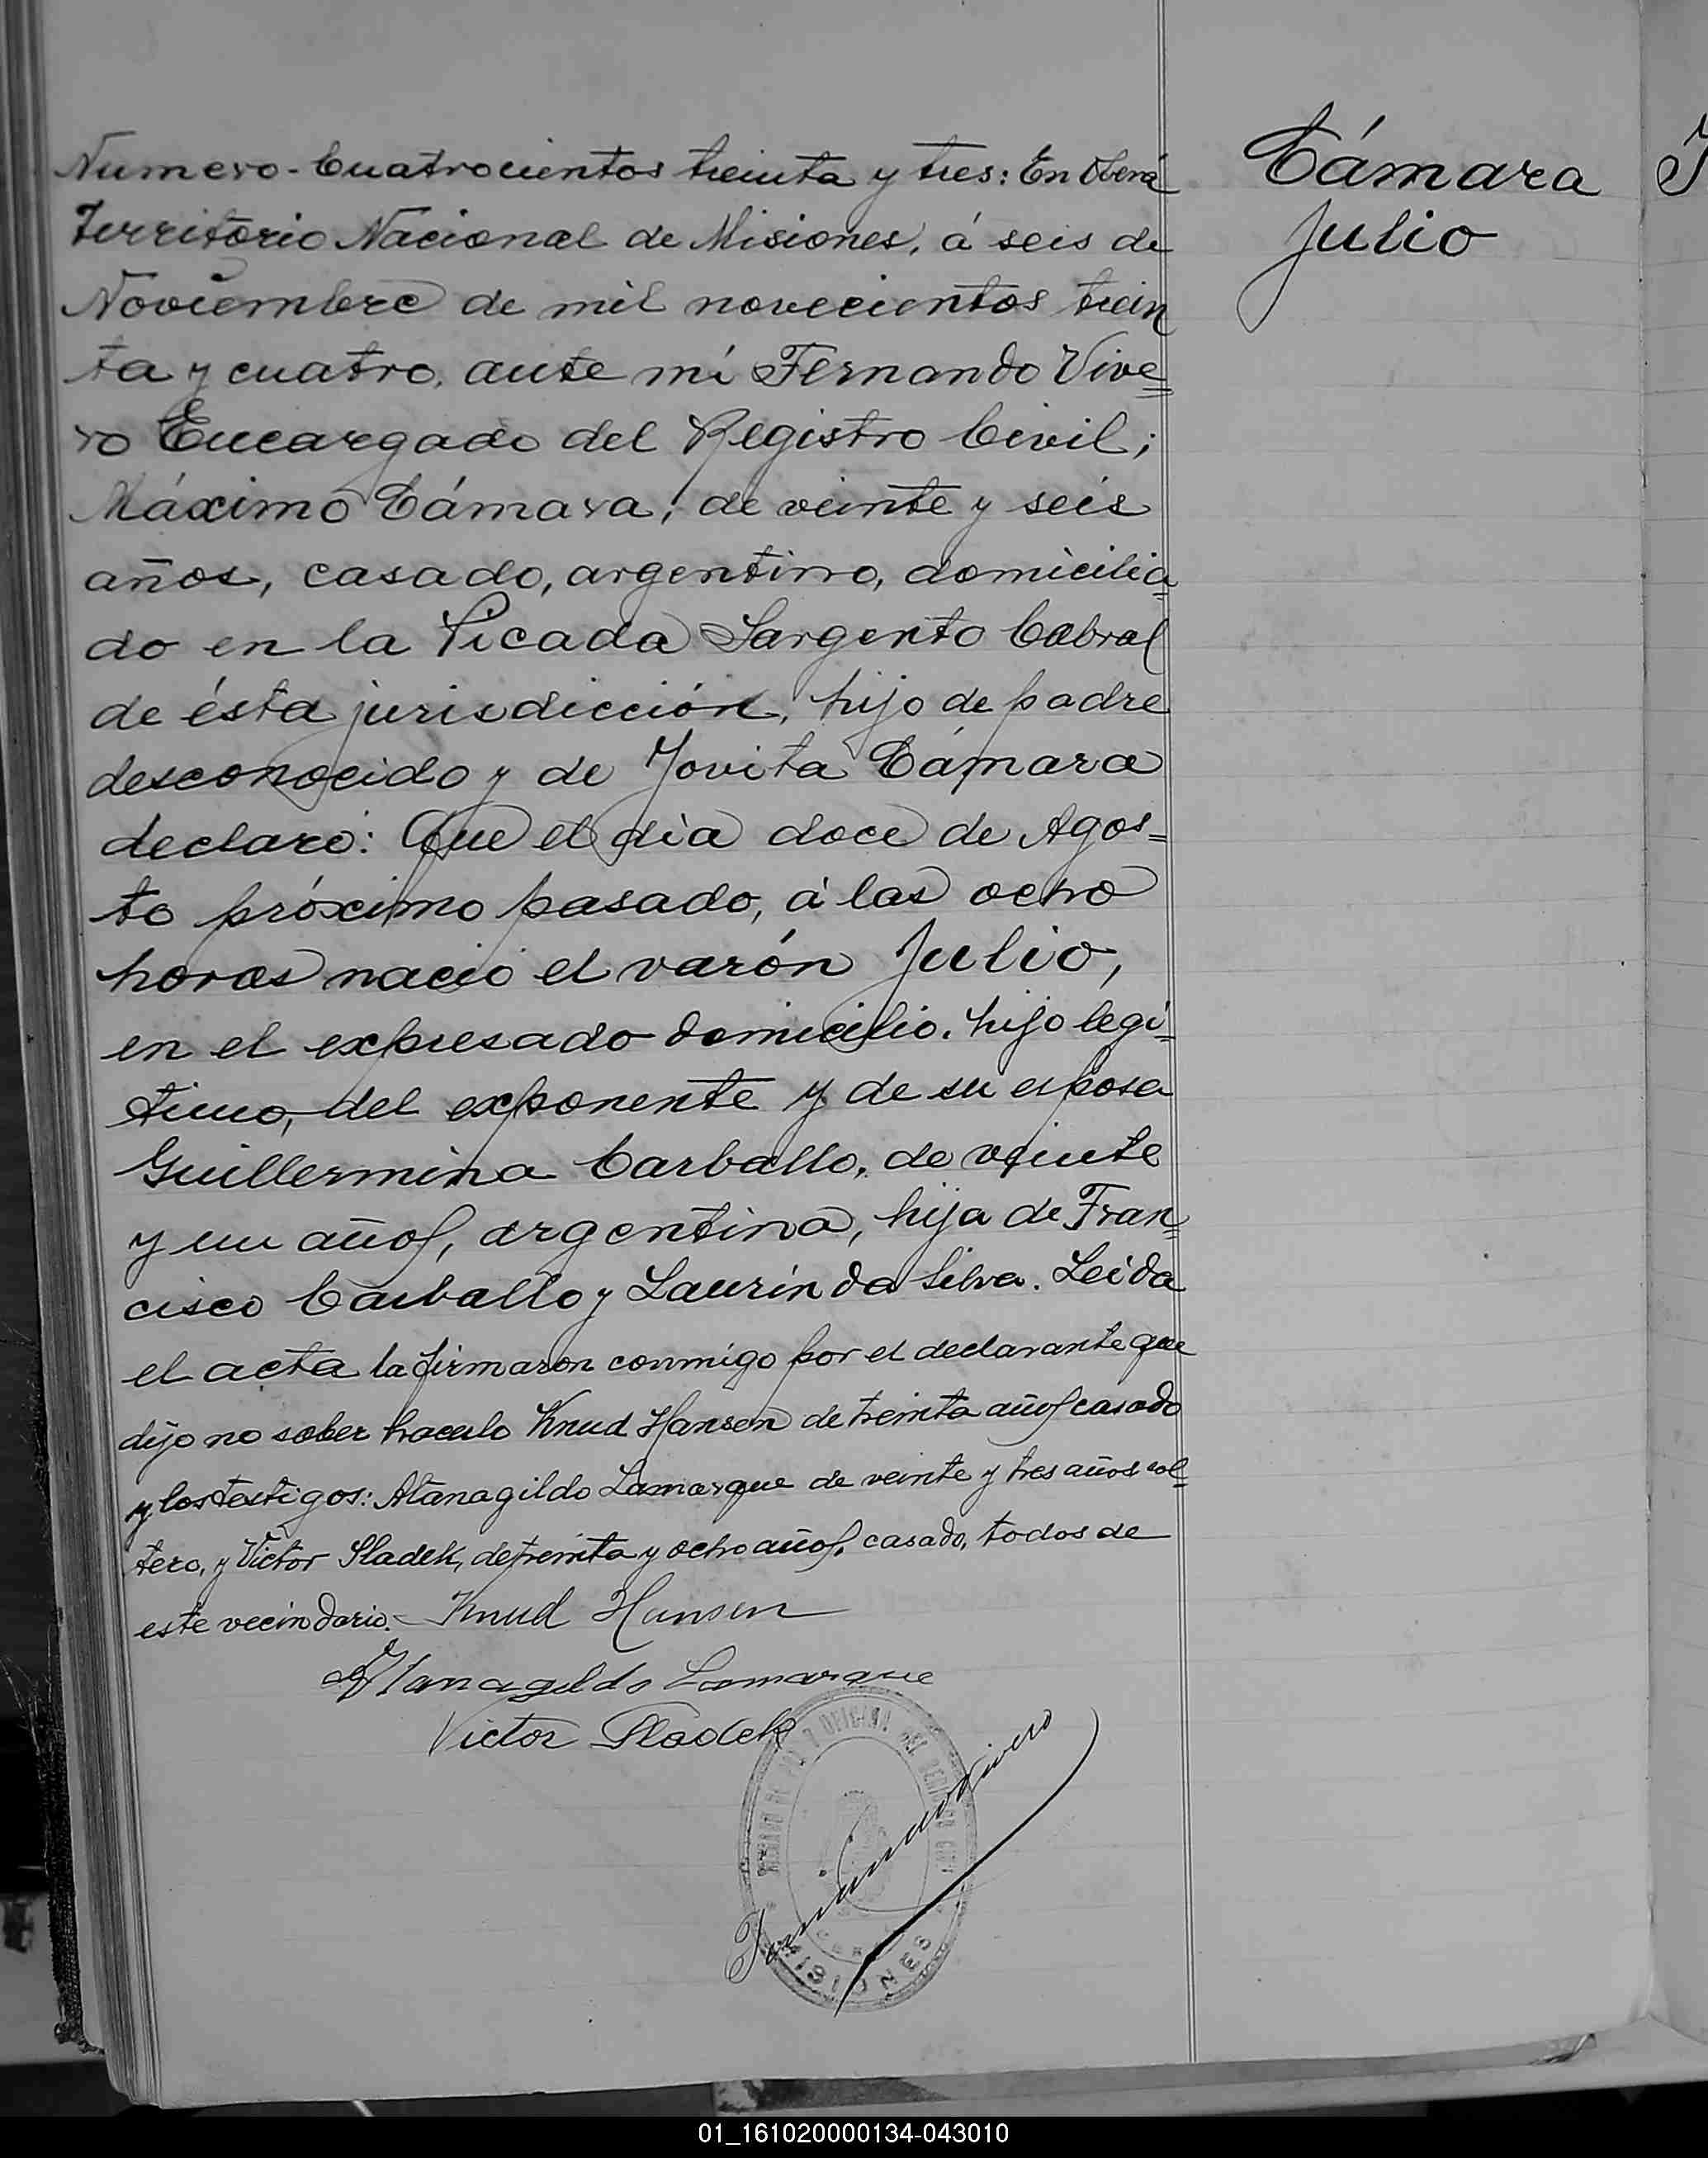 Cámara
Julio
Numero-Cuatrocientos treinta y tres: En Oberá
Territorio Nacional de Misiones, á seis de
Noviembre de mil novecientos trein
ta y cuatro, ante mí Fernando Vive=
ro Encargado del Registro Civil;
Máximo Cámara, de veinte y seis
años, casado, argentino, domicilia=
do en la Picada Sargento Cabral
de ésta jurisdicción, hijo de padre
desconocido y de Jovita Cámara
declaró: Que el día doce de Agos=
to próximo pasado, á las ocho
horas nació el varón Julio,
en el expresado domicilio, hijo legí=
timo, del exponente y de su esposa
Guillermina Carballo, de veinte
y un años, argentina, hija de Fran=
cisco Carballo y Laurinda Silva. Leida
el acta la firmaron conmigo por el declarante que
dijo no saber hacerlo Knud Hansen de treinta años casado
y los testigos: Atanagildo Lamarque de veinte y tres años sol=
tero, y Victor Sladek, de treinta y ocho años, casado, todos de
este vecindario.- Knud Hansen
Atanagildo Lamarque
Victor Sladek
Fernando Vivero
MISIONES
01_161020000134-043010